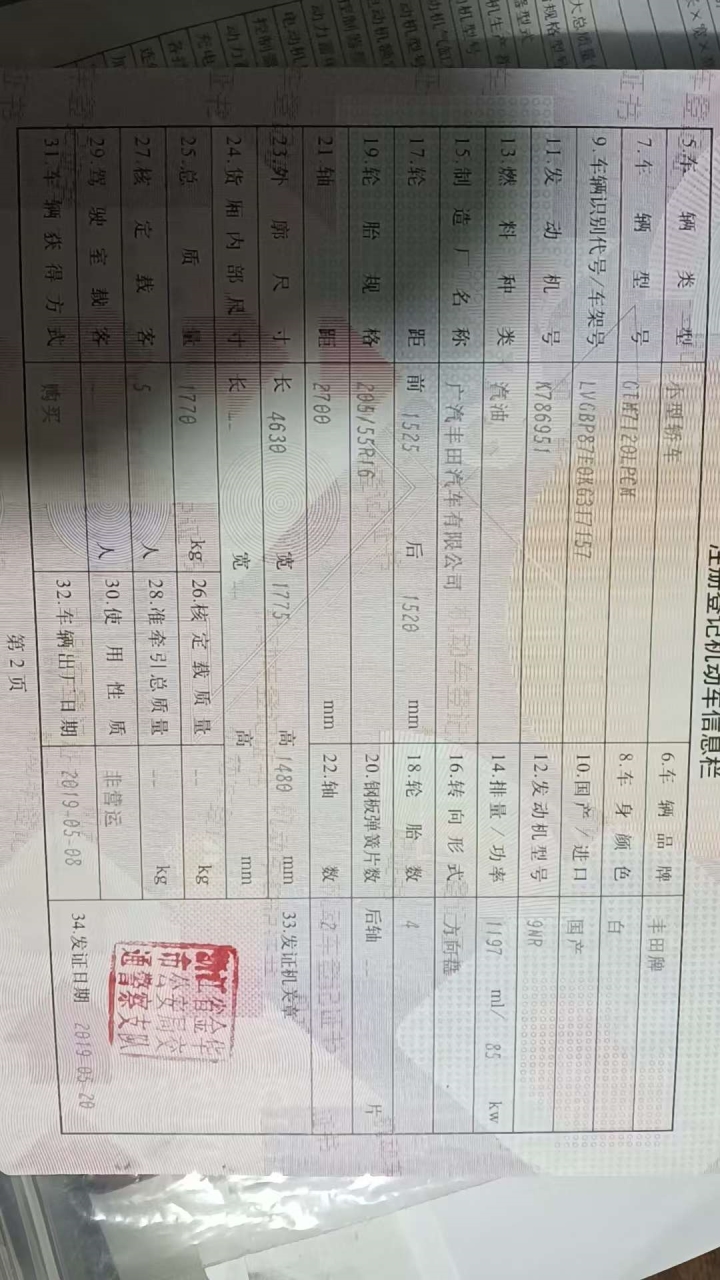 注册登记机动车信息栏
5.车辆类型 小型轿车 6.车辆品牌 丰田牌
7.车辆型号 8.车身颜色 白
9.车辆识别代号/车架号 10.国产/进口 国产
11.发动机号 K786951 12.发动机型号 9NR
13.燃料种类 汽油 14.排量/功率 1197 ml/ 85 kw
15.制造厂名称 广汽丰田汽车有限公司 16.转向形式 方向盘
17.轮距 前 1525 后 1520 mm 18.轮胎数 4
19.轮胎规格 205/55R16 20.钢板弹簧片数 后轴 -- 片
21.轴距 2700 mm 22.轴数 2
23.外廓尺寸 长 4630 宽 1775 高 1480 mm 33.发证机关章
24.货厢内部尺寸 长 -- 宽 -- 高 -- mm
25.总质量 1770 kg 26.核定载质量 -- kg
27.核定载客 5 人 28.准牵引总质量 -- kg
29.驾驶室载客 -- 人 30.使用性质 非营运
31.车辆获得方式 购买 32.车辆出厂日期 2019-05-08 34.发证日期 2019-05-20
浙江省金华
市公安局交
通警察支队
第2页